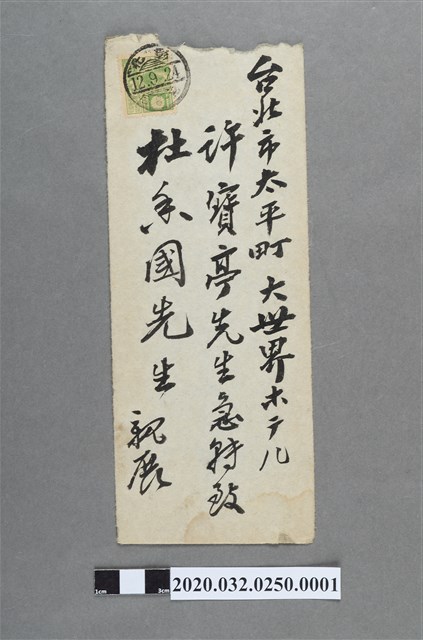 台北市太平町 大世界ホテル
許寶亭先生急轉致
杜香國先生 親展
12.9.24
1cm
3cm
2020.032.0250.0001